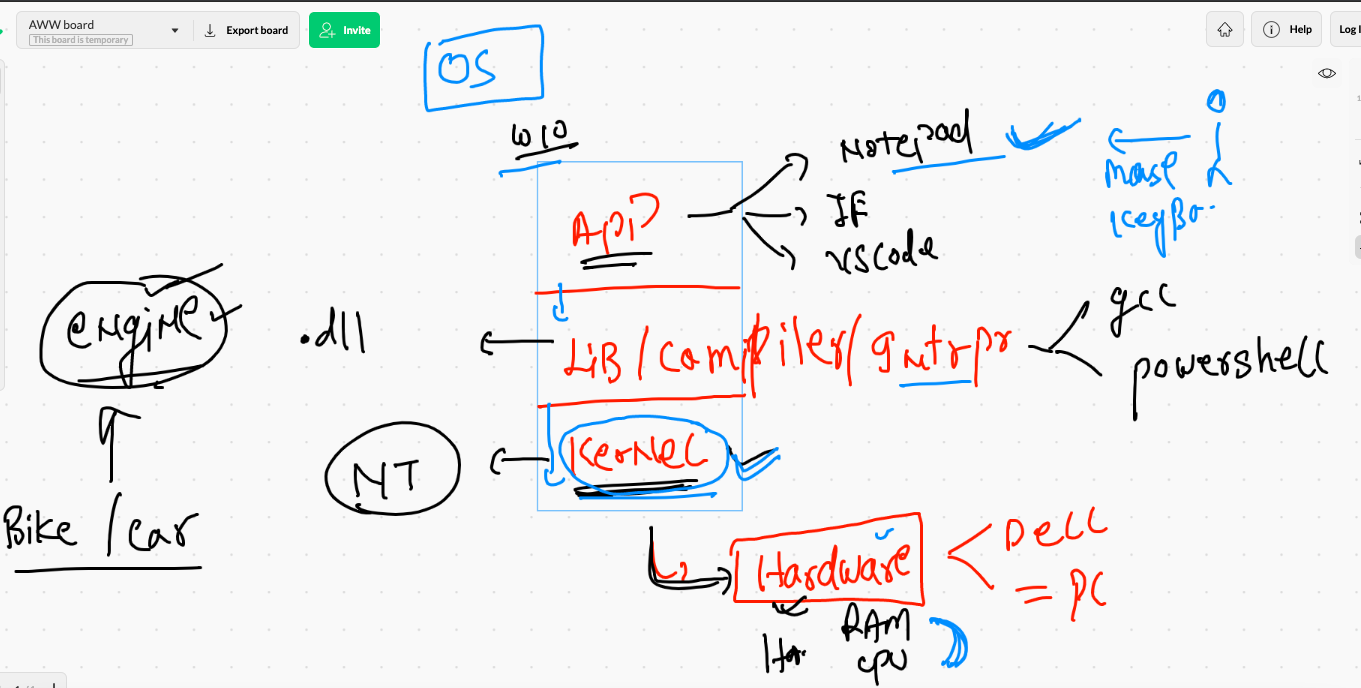 AWW board
This board is temporary
Export board
Invite
Help
OS
W10
App
Notepad
IE
VSCode
Mouse
engine
.dll
LiB / compiler / Intrpr
gcc
powershell
Kernel
NT
Bike / car
Hardware
Dell
= PC
RAM
cpu